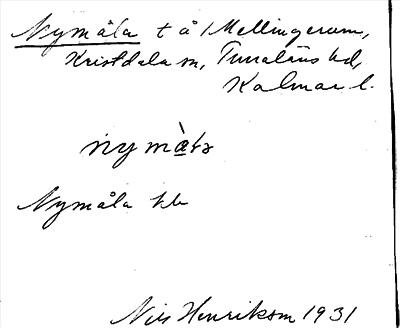 Nymåla t å 1 Mellingerum,
Kristdala sn, Tunaläns hd,
Kalmar l.
nymå̀la
Nymåla hb
Nils Henrikson 1931